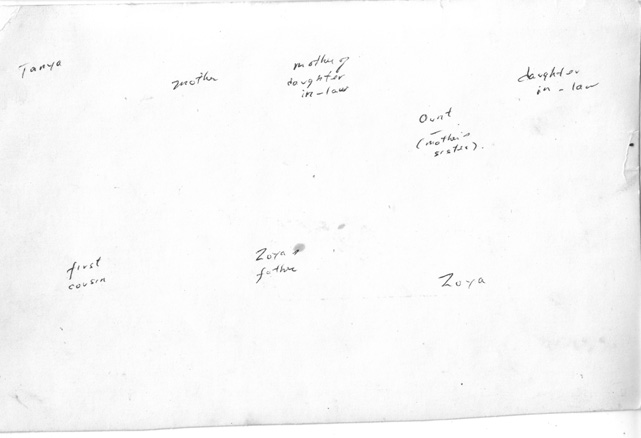 Tanya
mother
mother of
daughter
in-law
daughter
in-law
Ount
(mother's
sister).
first
cousin
Zoya's
father
Zoya